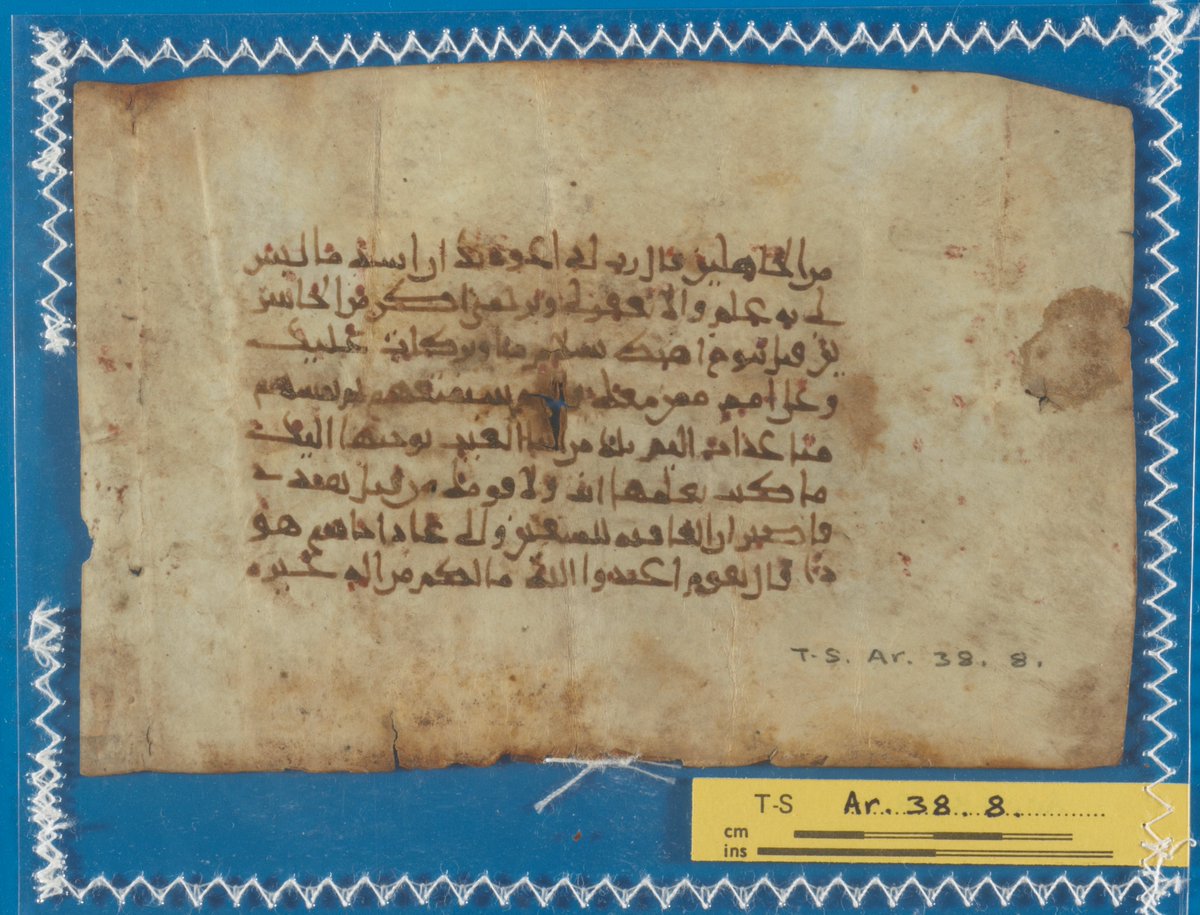 من الجاهلين قال رب اني اعوذ بك ان اسئلك ما ليس
لي به علم والا تغفر لي وترحمني اكن من الخاسر
ين قيل ينوح اهبط بسلم منا وبركات عليك
وعلى امم ممن معك سنمتعهم ثم يمسهم
منا عذاب اليم تلك من الغيب نوحيها اليك
ما كنت تعلمها انت ولا قومك من قبل
فاصبر ان العاقبة للمتقين والى عاد اخاهم هو
دا قال يقوم اعبدوا الله ما لكم من اله غيره
T-S. Ar. 38. 8.
T-S Ar. 38. 8.
cm
ins